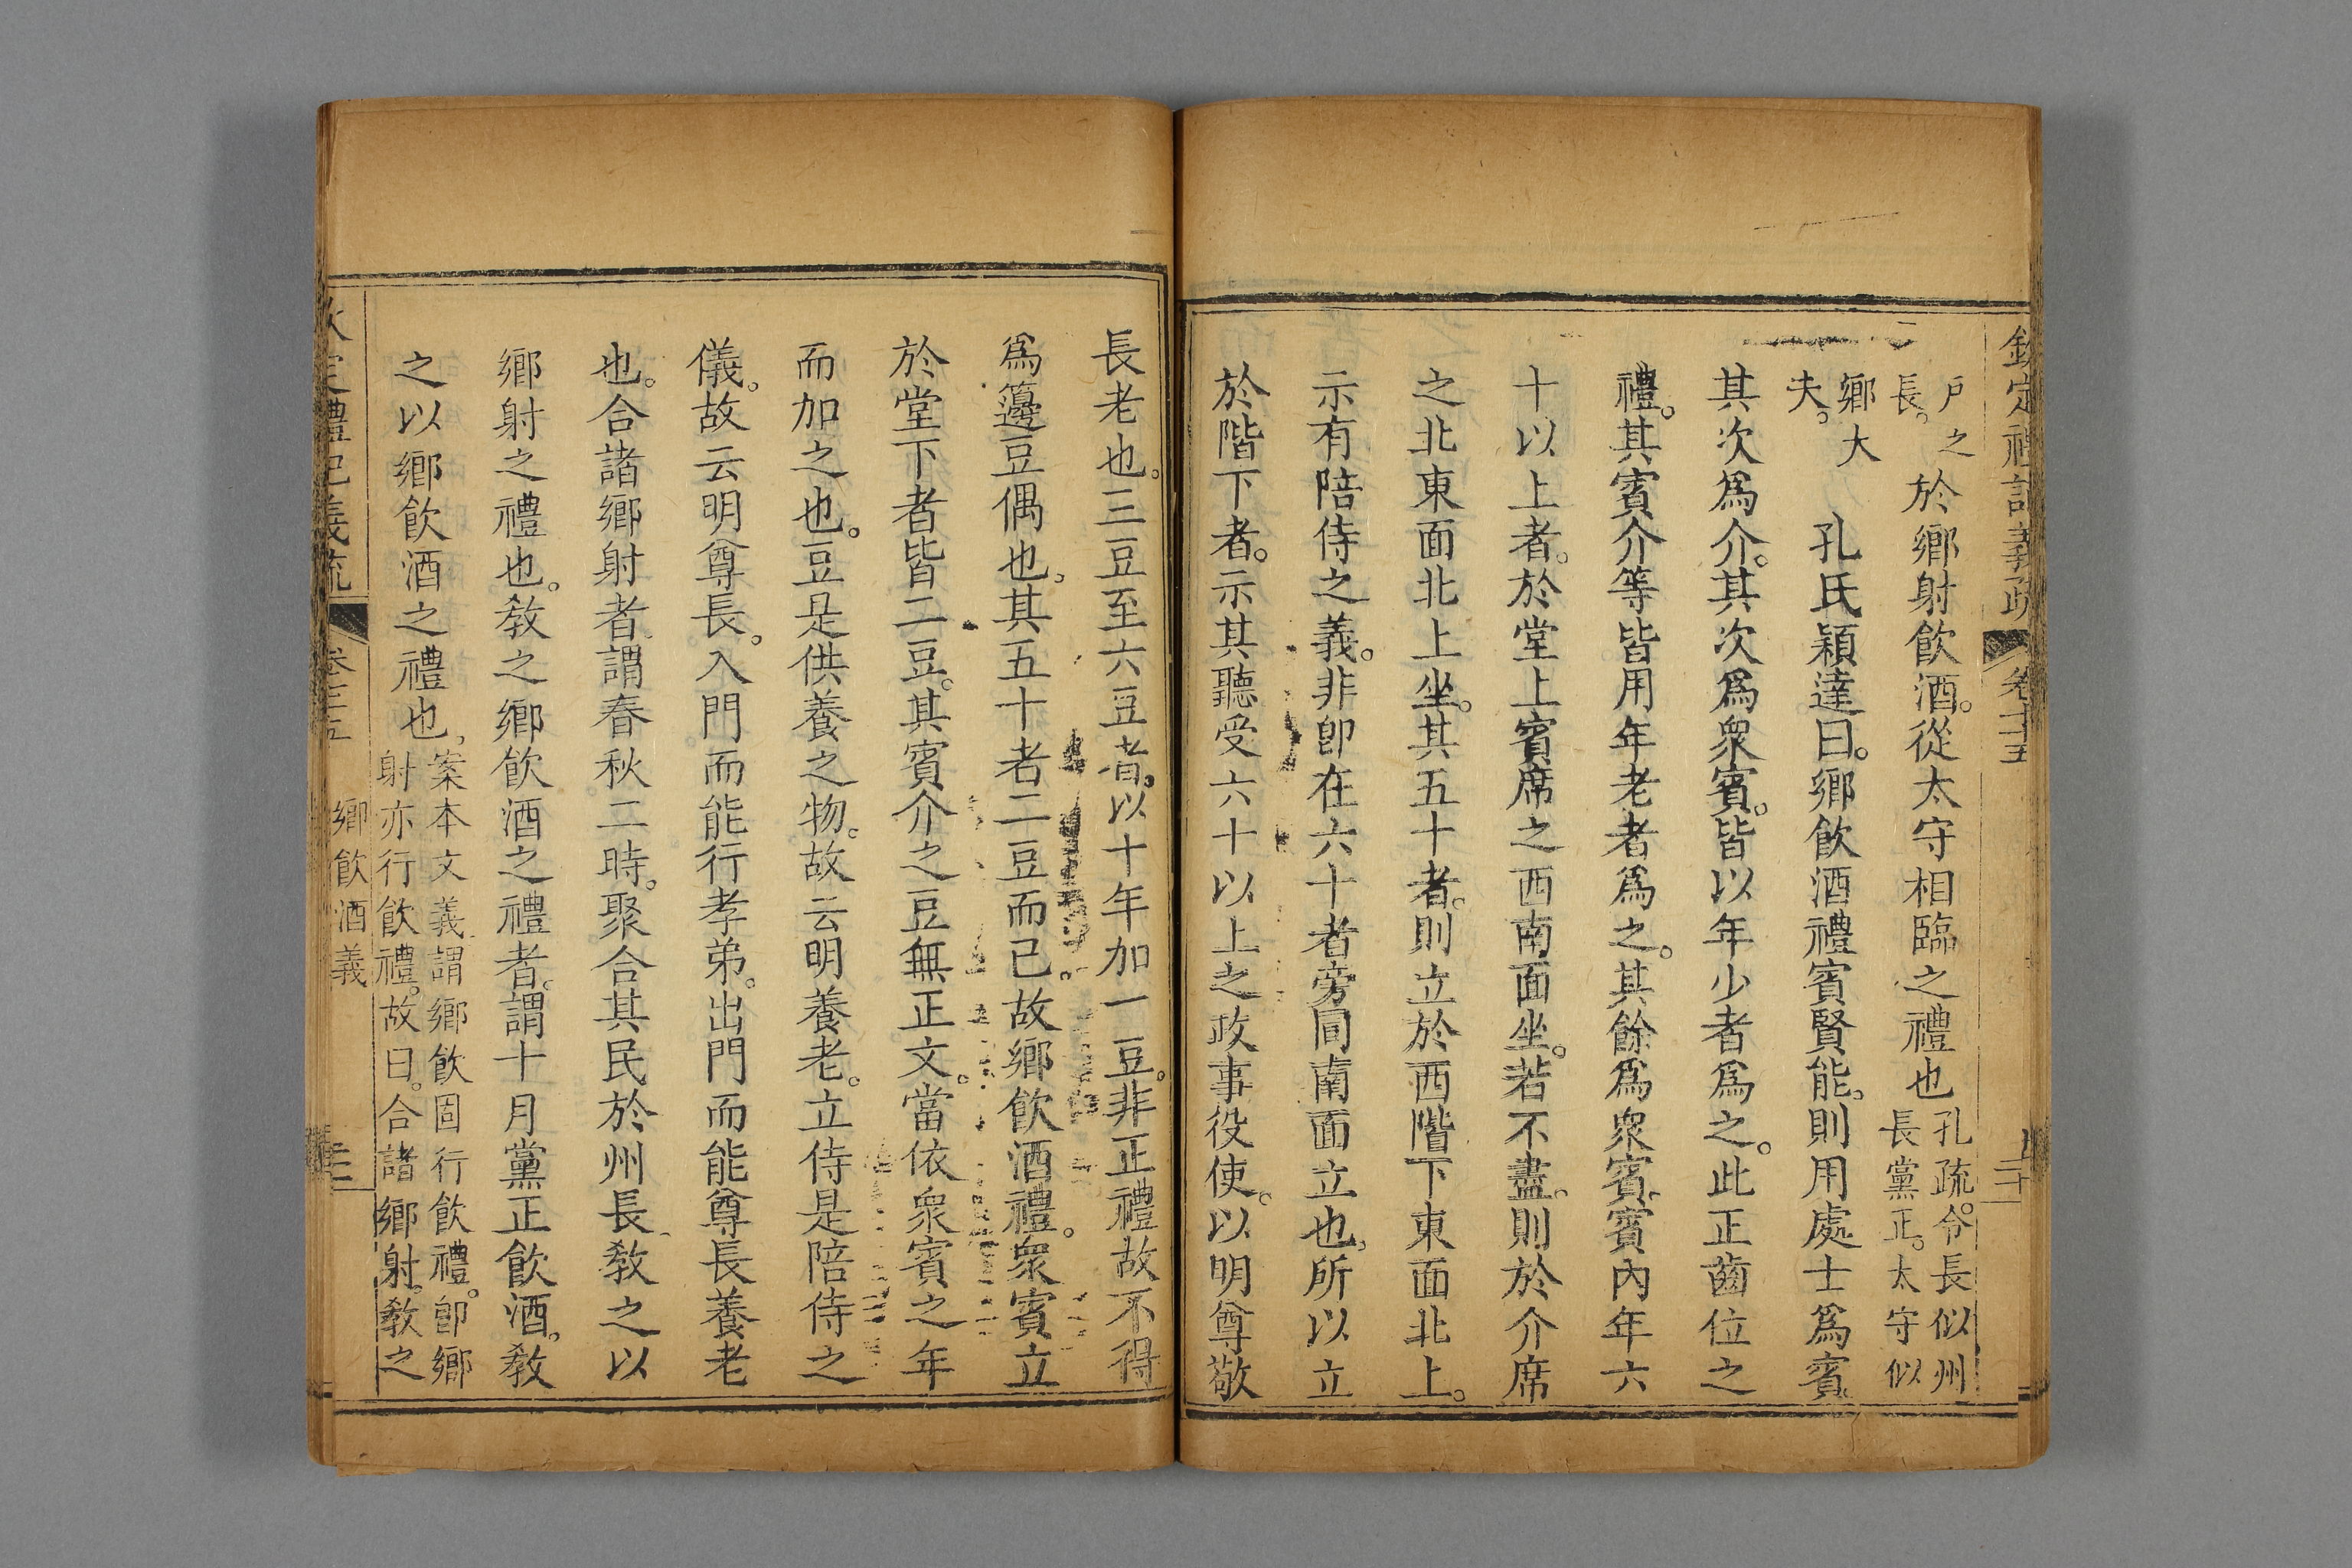 欽定禮記義疏
戶之
長。
於鄉射飲酒。從太守相臨之禮也
孔疏。令長似州
長黨正。太守似
鄉大
夫。
孔氏穎達曰。鄉飲酒禮賓賢能。則用處士爲賓。
其次爲介。其次爲衆賓。皆以年少者爲之。此正齒位之
禮。其賓介等皆用年老者爲之。其餘爲衆賓。賓內年六
十以上者。於堂上賓席之西南面坐。若不盡。則於介席
之北東面北上坐。其五十者。則立於西階下東面北上。
示有陪侍之義。非卽在六十者旁同南面立也。所以立
於階下者。示其聽受六十以上之政事役使。以明尊敬
長老也。三豆至六豆者。以十年加一豆。非正禮故不得
爲籩豆偶也。其五十者二豆而已。故鄉飲酒禮。衆賓立
於堂下者皆二豆。其賓介之豆無正文。當依衆賓之年
而加之也。豆是供養之物。故云明養老。立侍是陪侍之
儀。故云明尊長。入門而能行孝弟。出門而能尊長養老
也。合諸鄉射者。謂春秋二時。聚合其民於州長。敎之以
鄉射之禮也。敎之鄉飲酒之禮者。謂十月黨正飲酒。敎
之以鄉飲酒之禮也。
案本文義。謂鄉飲固行飲禮。卽鄉
射亦行飲禮。故曰。合諸鄉射。敎之
定禮記義疏
鄉飲酒義